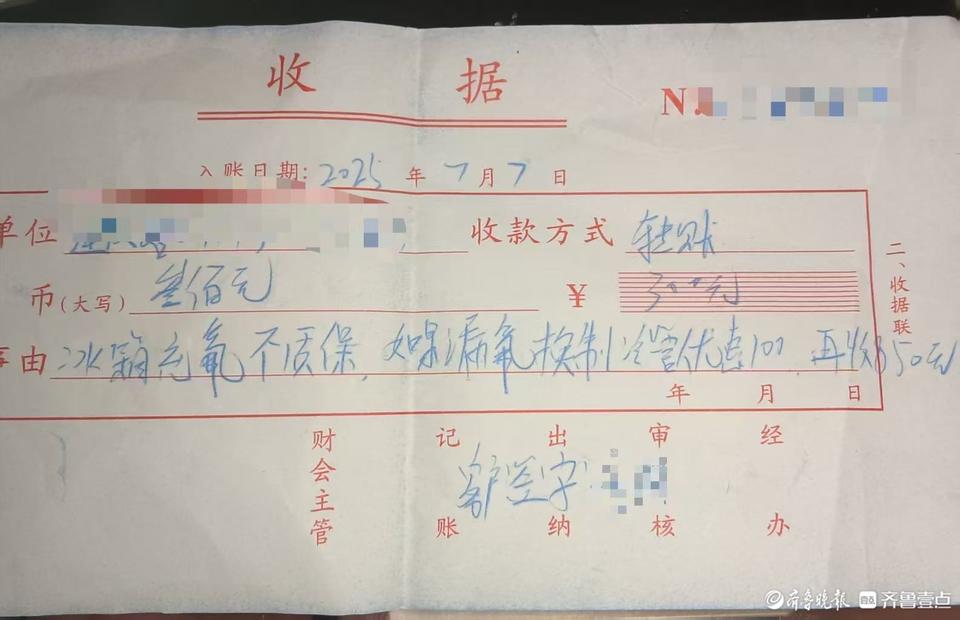 收 据
N
入账日期: 2025 年 7 月 7 日
单位 收款方式 转账
币(大写) 叁佰元 ¥ 300元
事由 冰箱充氟不质保，如果漏氟换制冷管优惠100，再收350元
年 月 日
二、收据联
财会主管 记账 出纳 审核 经办
客户签字:
齐鲁晚报 齐鲁壹点